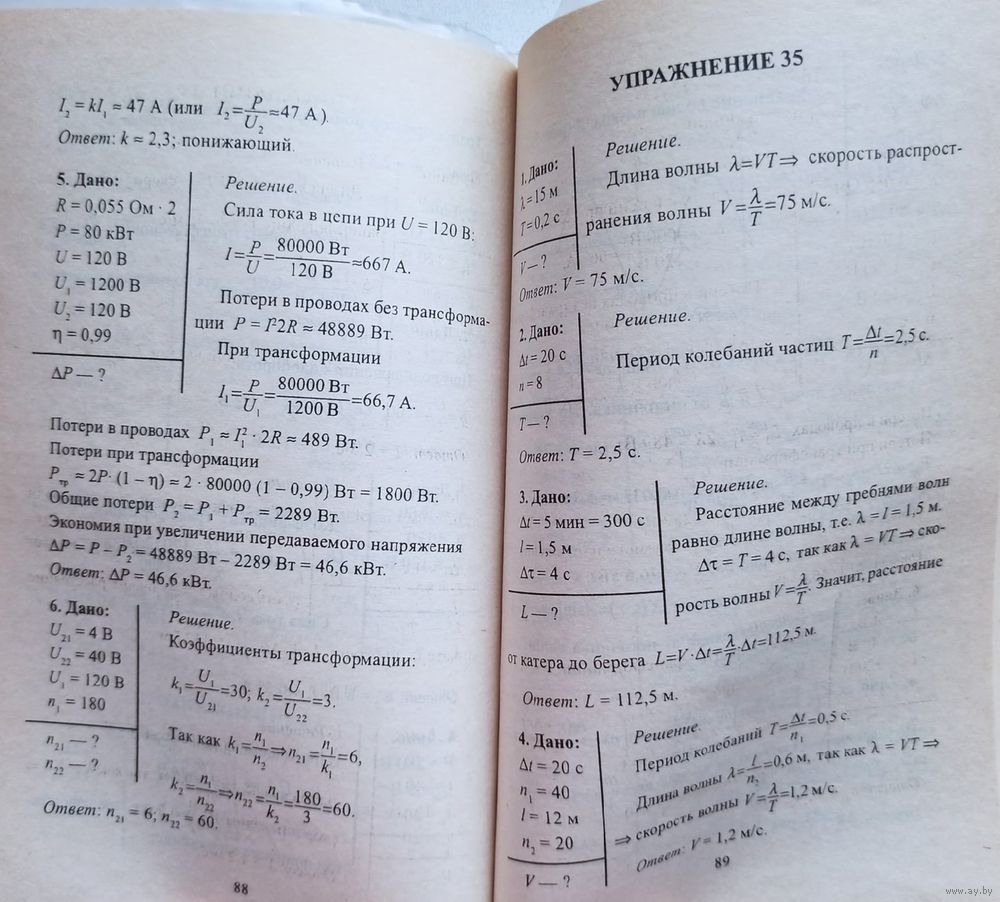 I₂ = kI₁ ≈ 47 А (или I₂ = P/U₂ ≈ 47 А).
Ответ: k ≈ 2,3; понижающий.
5. Дано:
R = 0,055 Ом · 2
P = 80 кВт
U = 120 В
U₁ = 1200 В
U₂ = 120 В
η = 0,99
ΔP — ?
Решение.
Сила тока в цепи при U = 120 В:
I = P/U = 80000 Вт/120 В ≈ 667 А.
Потери в проводах без трансформа-
ции P = I²2R ≈ 48889 Вт.
При трансформации
I₁ = P/U₁ = 80000 Вт/1200 В = 66,7 А.
Потери в проводах P₁ ≈ I₁² · 2R ≈ 489 Вт.
Потери при трансформации
Pтр ≈ 2P· (1 – η) ≈ 2 · 80000 (1 – 0,99) Вт = 1800 Вт.
Общие потери P₂ = P₁ + Pтр = 2289 Вт.
Экономия при увеличении передаваемого напряжения
ΔP = P – P₂ = 48889 Вт – 2289 Вт = 46,6 кВт.
Ответ: ΔP = 46,6 кВт.
6. Дано:
U₂₁ = 4 В
U₂₂ = 40 В
U₁ = 120 В
n₁ = 180
n₂₁ — ?
n₂₂ — ?
Решение.
Коэффициенты трансформации:
k₁ = U₁/U₂₁ = 30; k₂ = U₁/U₂₂ = 3.
Так как k₁ = n₁/n₂ ⇒ n₂₁ = n₁/k₁ = 6,
k₂ = n₁/n₂₂ ⇒ n₂₂ = n₁/k₂ = 180/3 = 60.
Ответ: n₂₁ = 6; n₂₂ = 60.
88
УПРАЖНЕНИЕ 35
1. Дано:
λ = 15 м
T = 0,2 с
V — ?
Решение.
Длина волны λ = VT ⇒ скорость распрост-
ранения волны V = λ/T = 75 м/с.
Ответ: V = 75 м/с.
2. Дано:
Δt = 20 с
n = 8
T — ?
Решение.
Период колебаний частиц T = Δt/n = 2,5 с.
Ответ: T = 2,5 с.
3. Дано:
Δt = 5 мин = 300 с
l = 1,5 м
Δτ = 4 с
L — ?
Решение.
Расстояние между гребнями волн
равно длине волны, т.е. λ = l = 1,5 м.
Δτ = T = 4 с, так как λ = VT ⇒ ско-
рость волны V = λ/T. Значит, расстояние
от катера до берега L = V · Δt = λ/T · Δt = 112,5 м.
Ответ: L = 112,5 м.
4. Дано:
Δt = 20 с
n₁ = 40
l = 12 м
n₂ = 20
V — ?
Решение.
Период колебаний T = Δt/n₁ = 0,5 с.
Длина волны λ = L/n₂ = 0,6 м, так как λ = VT ⇒
⇒ скорость волны V = λ/T = 1,2 м/с.
Ответ: V = 1,2 м/с.
89
www.ay.by